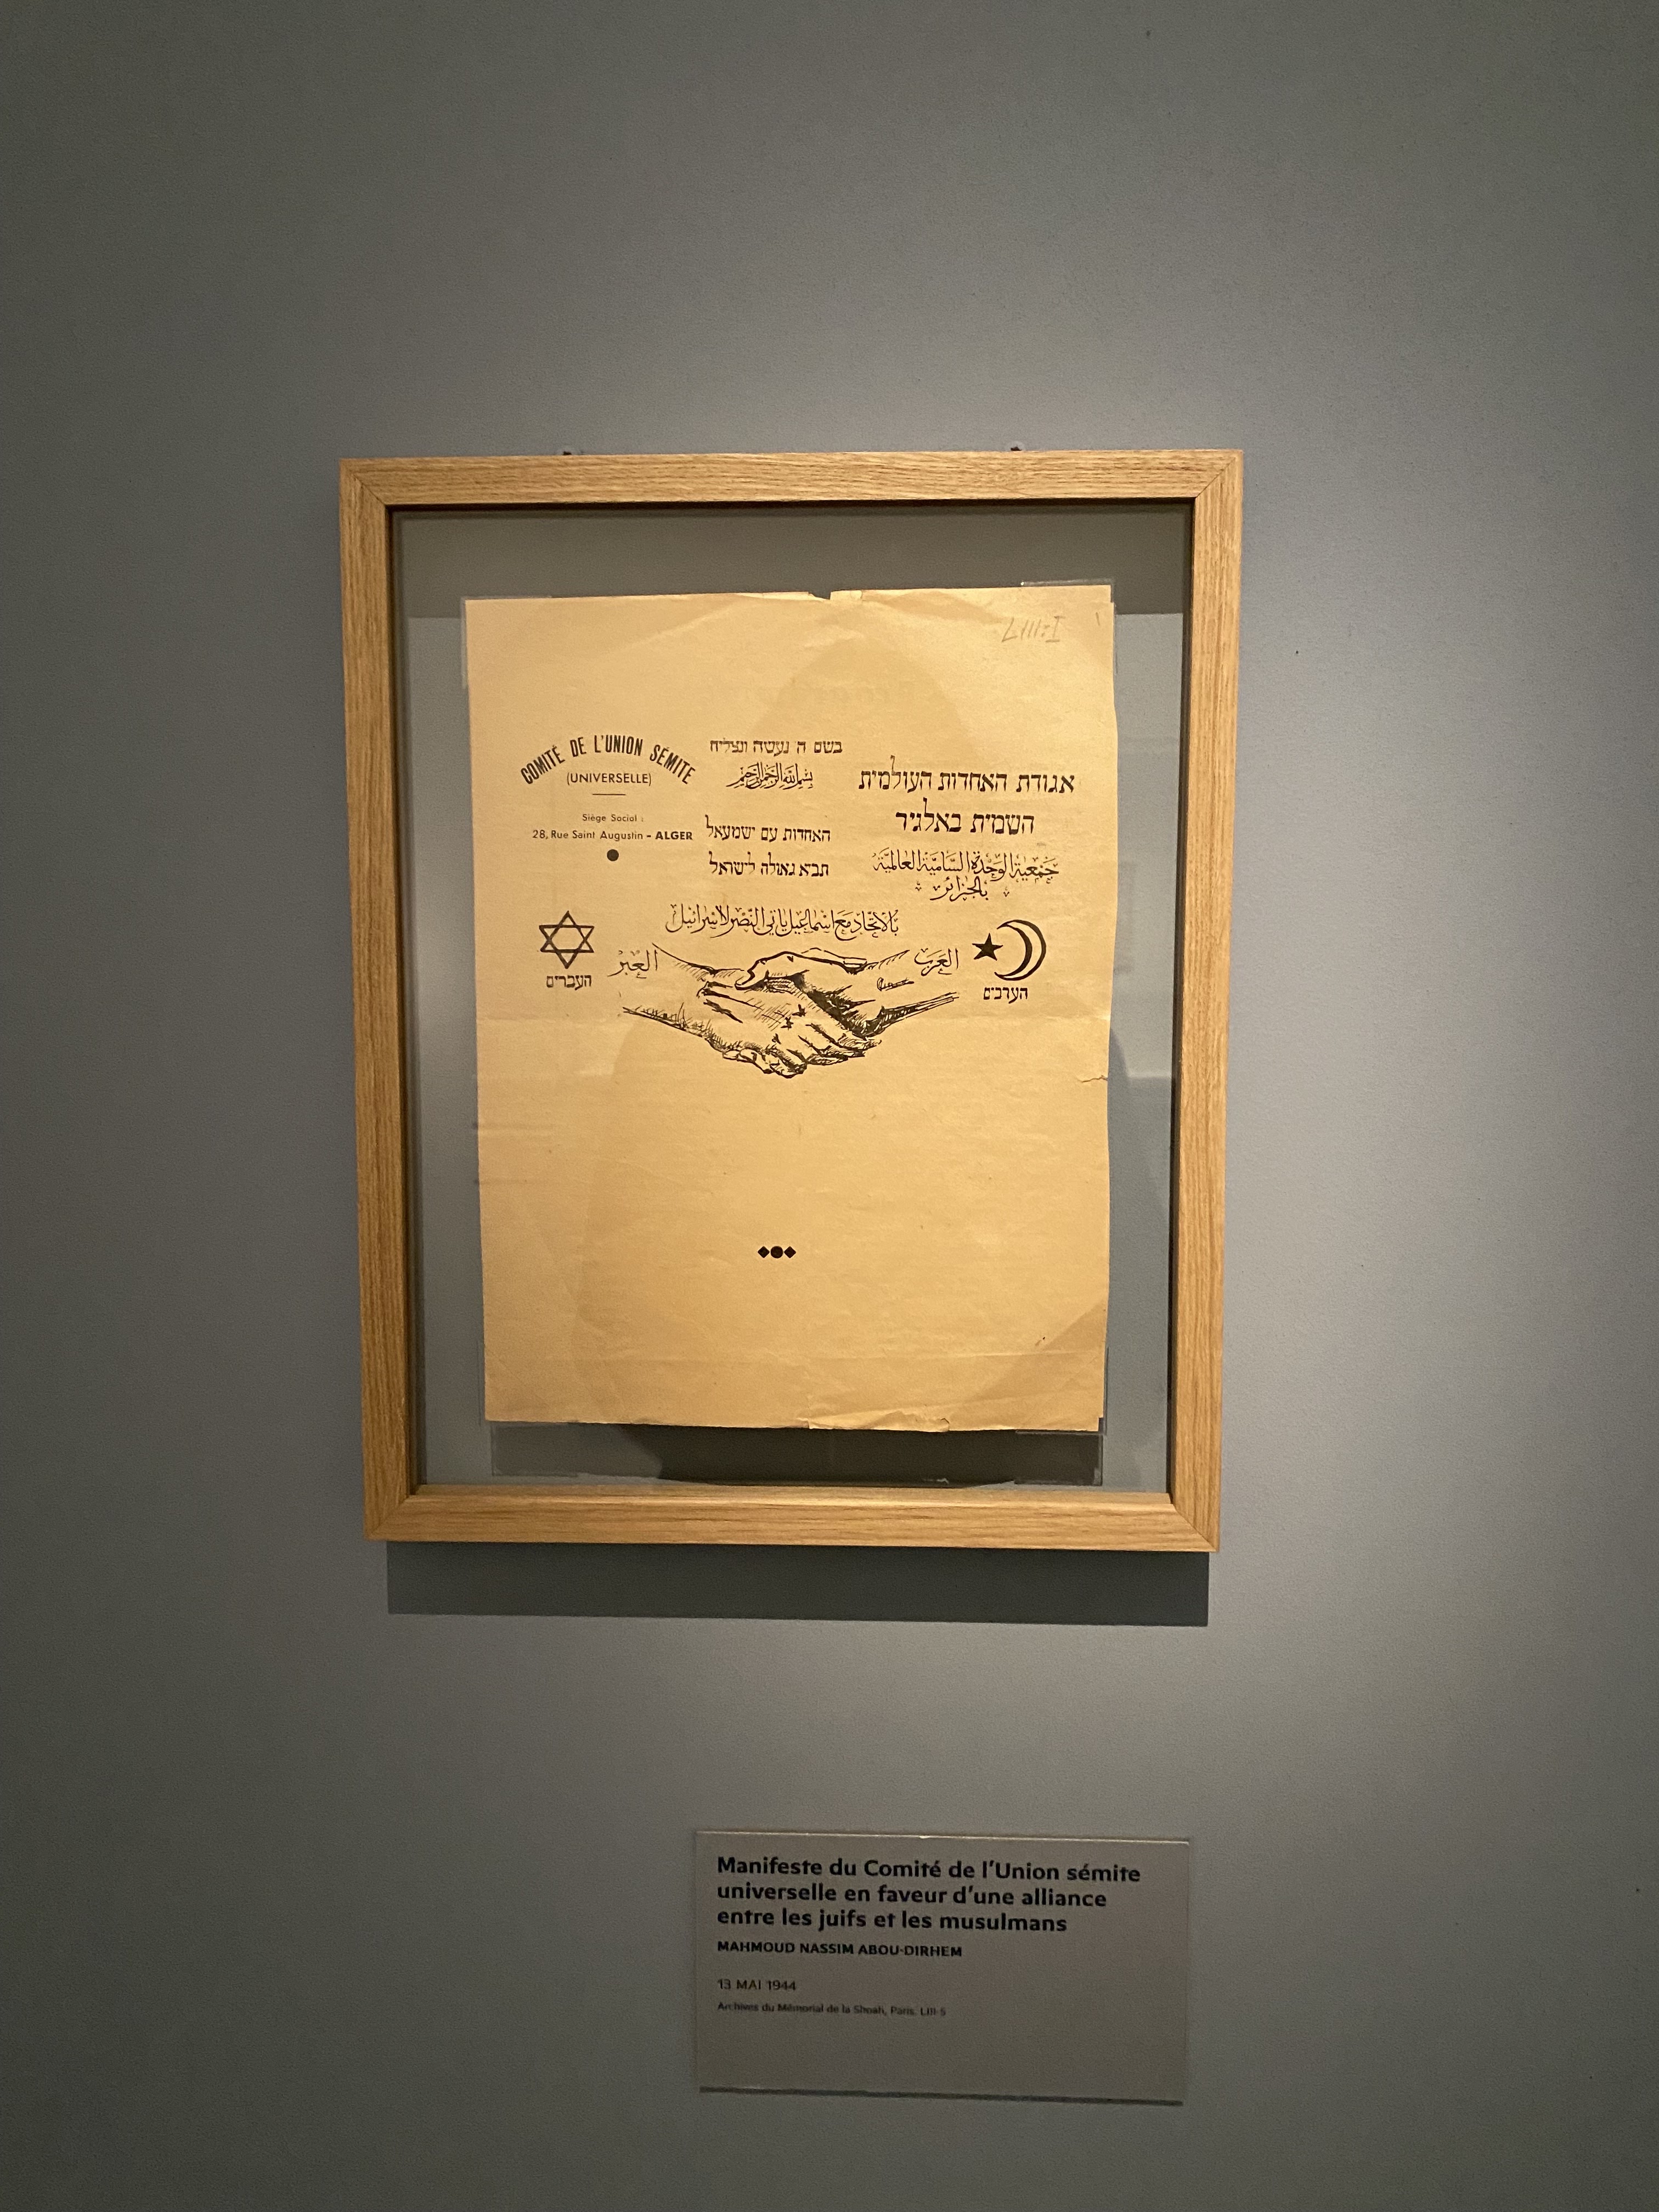 COMITÉ DE L'UNION SÉMITE
(UNIVERSELLE)
Siège Social :
28, Rue Saint Augustin - ALGER
בשם ה נעשה ונצליח
بسم الله الرحمن الرحيم
האחדות עם ישמעאל
תביא גאולה לישראל
אגודת האחדות העולמית
השמית באלגיר
جمعية الوحدة السامية العالمية
بالجزائر
بالاتحاد مع اسماعيل ياتي النصر لاسرائيل
העברים
العبر
العرب
הערבים
Manifeste du Comité de l'Union sémite
universelle en faveur d'une alliance
entre les juifs et les musulmans
MAHMOUD NASSIM ABOU-DIRHEM
13 MAI 1944
Archives du Mémorial de la Shoah, Paris, LIII-5